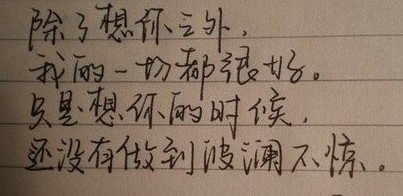 除了想你之外,
我的一切都很好。
只是想你的时候,
还没有做到波澜不惊。